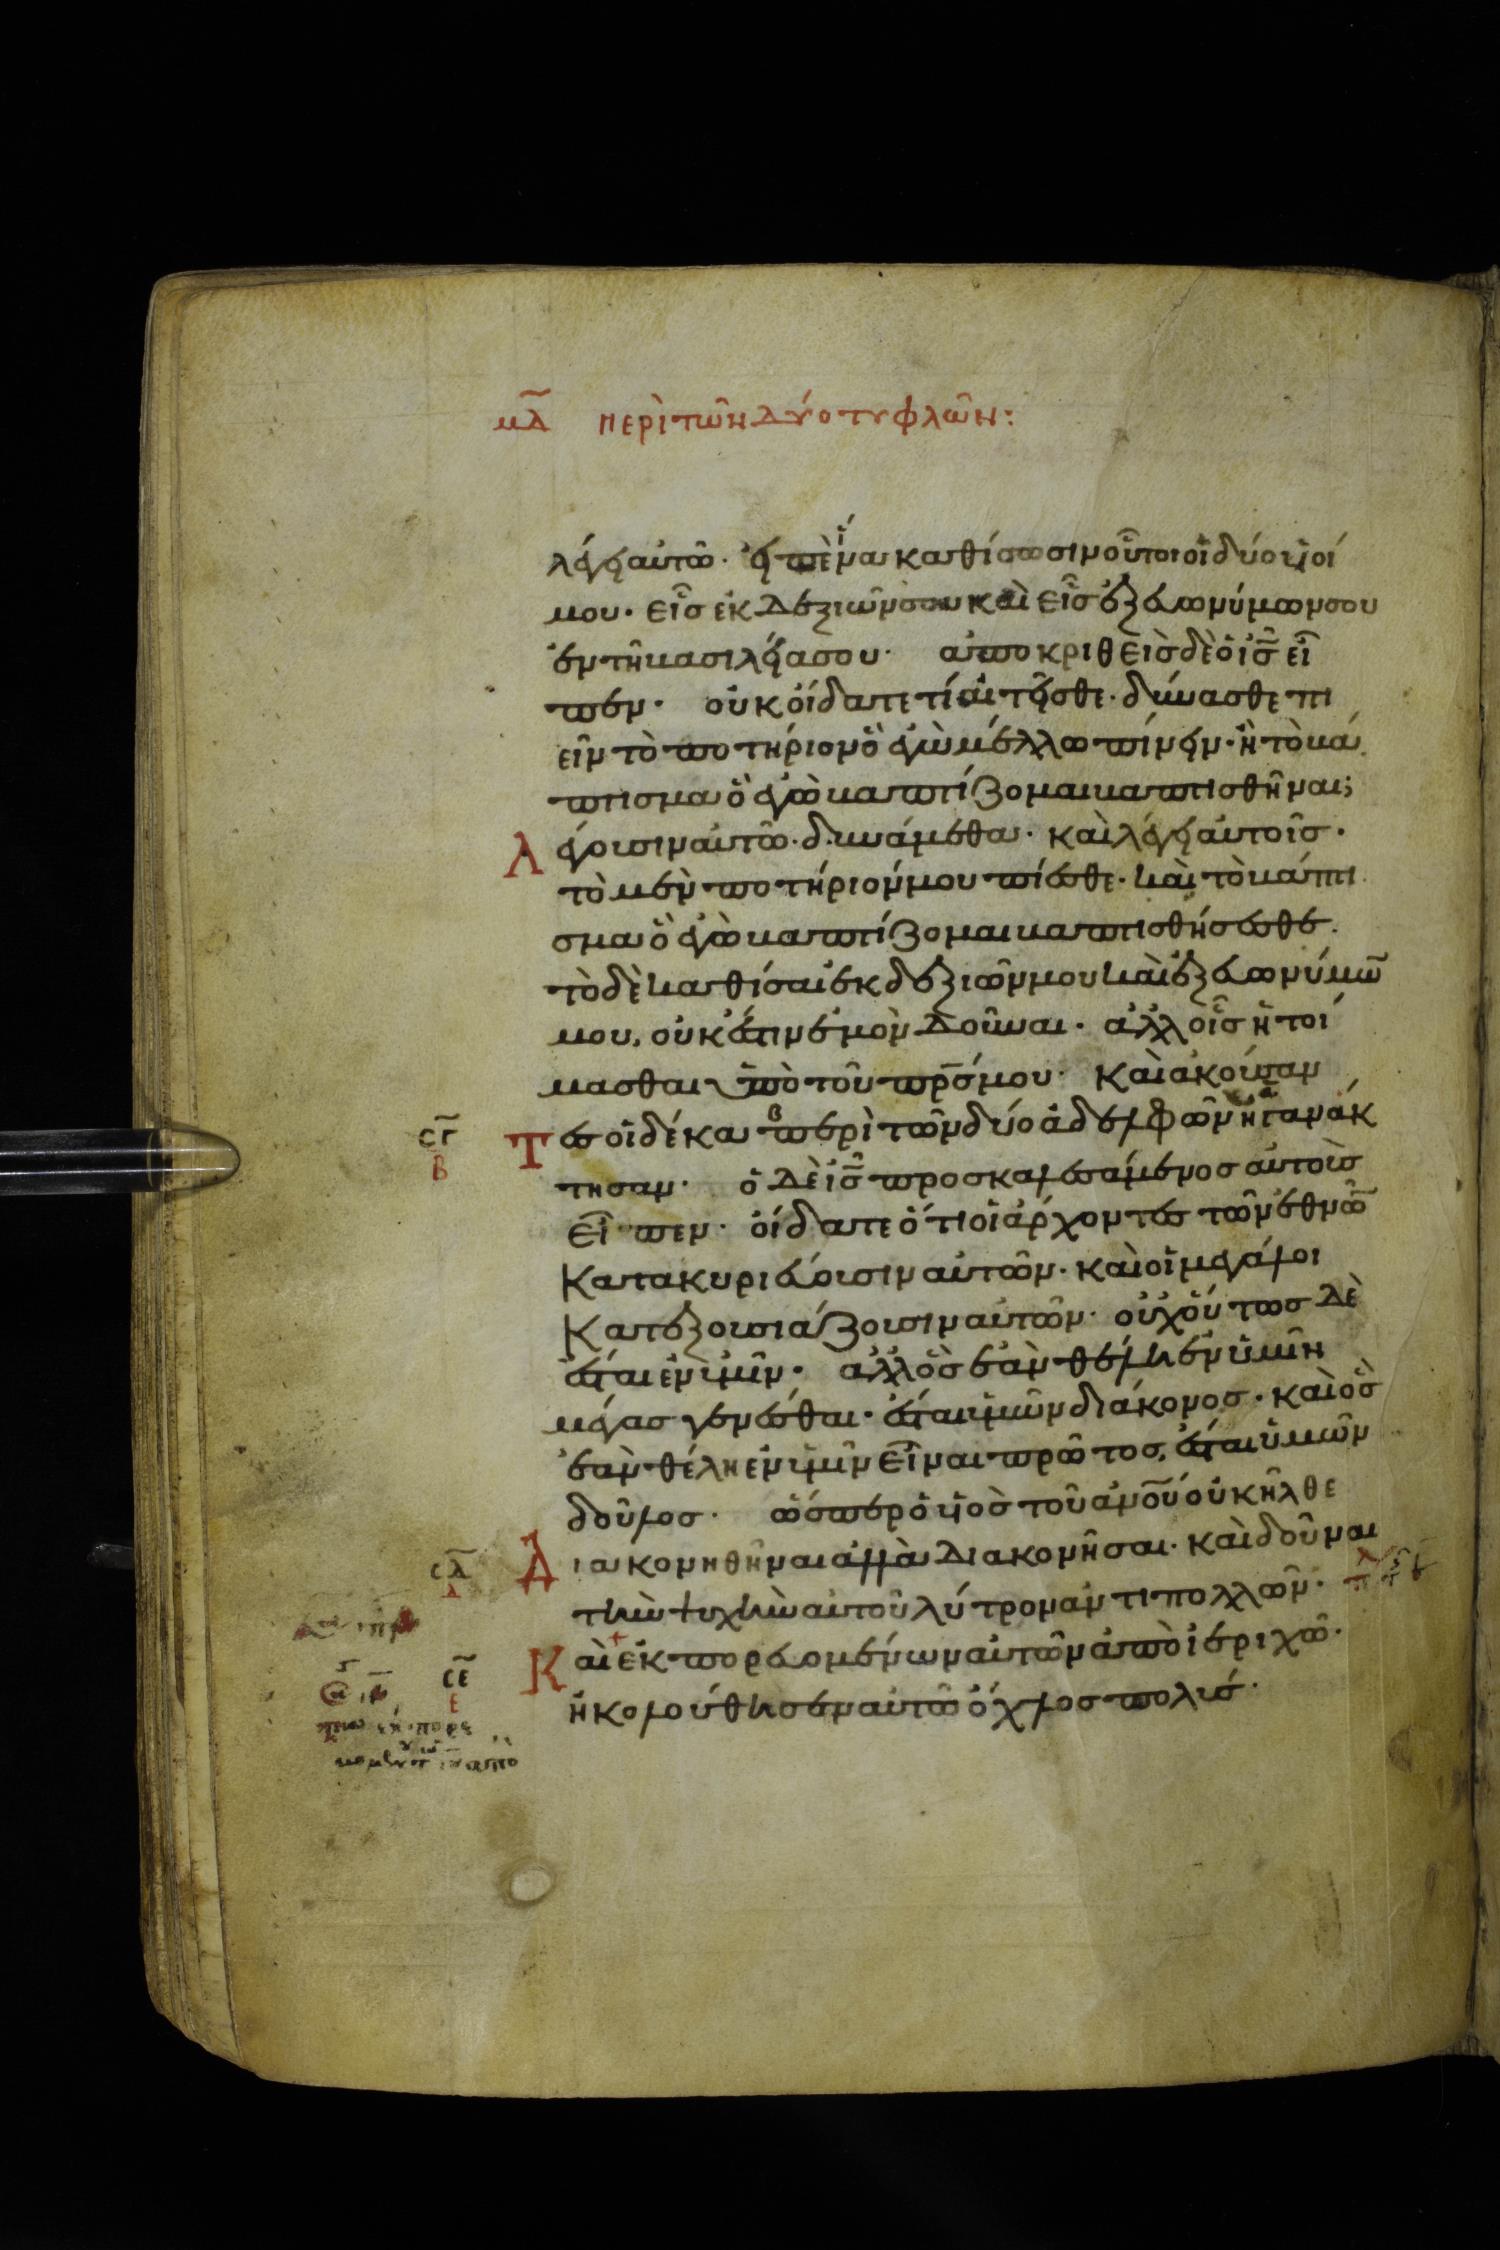 μδ περὶ τῶν δύο τυφλῶν:
λέγει αὐτῶ· εἰπὲ ἵνα καθίσωσιν οὗτοι οἱ δύο υἱοί
μου· εἷς ἐκ δεξιῶν σου καὶ εἷς ἐξ εὐωνύμων σου
ἐν τῆ βασιλεία σου· ἀποκριθεὶς δὲ ὁ ις εἶ
πεν· οὐκ οἴδατε τί αἰτεῖσθε· δύνασθε πι
εῖν τὸ ποτήριον ὃ ἐγὼ μέλλω πίνειν· ἢ τὸ βά
πτισμα ὃ ἐγὼ βαπτίζομαι βαπτισθῆναι;
Λέγουσιν αὐτῶ· δυνάμεθα· καὶ λέγει αὐτοῖς·
τὸ μὲν ποτήριόν μου πίεσθε· καὶ τὸ βάπτι
σμα ὃ ἐγὼ βαπτίζομαι βαπτισθήσεσθε·
τὸ δὲ καθίσαι ἐκ δεξιῶν μου καὶ ἐξ εὐωνύμω
μου, οὐκ ἔστιν ἐμὸν δοῦναι· ἀλλ οἷς ἡτοί
μασθαι ὑπὸ τοῦ πρς μου· καὶ ἀκούσαν
σγ β Τες οἱ δέκα περὶ τῶν δύο ἀδελφῶν ἠγανάκ
τησαν· ὁ δὲ ις προσκαλεσάμενος αὐτοὺς
εἶπεν· οἴδατε ὅτι οἱ ἄρχοντες τῶν ἐθνῶ
κατακυριεύουσιν αὐτῶν· καὶ οἱ μεγάλοι
κατεξουσιάζουσιν αὐτῶν· οὐχ οὕτως δὲ
ἔσται ἐν ὑμῖν· ἀλλ ὃς ἐὰν θέλη ἐν ὑμῖν
μέγας γενέσθαι· ἔσται ὑμῶν διάκονος· καὶ ὃς
ἐὰν θέλη ἐν ὑμῖν εἶναι πρῶτος, ἔσται ὑμῶν
δοῦλος· ὥσπερ ὁ υἱὸς τοῦ ανου οὐκ ἦλθε
σδ δ Διακονηθῆναι ἀλλὰ διακονῆσαι· καὶ δοῦναι
τὴν ψυχὴν αὐτοῦ λύτρον ἀντὶ πολλῶν·
σε ε Καὶ ἐκπορευομένων αὐτῶν ἀπὸ ἱεριχῶ·
ἠκολούθησεν αὐτῶ ὄχλος πολύς·